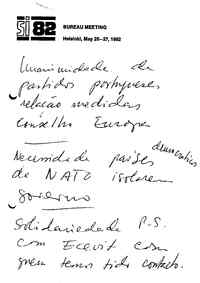 si 82
BUREAU MEETING
Helsinki, May 26–27, 1982
Unanimidade de
partidos portugueses
relação medidas
conselho Europa
Necessidade países democráticos
da NATO isolarem
governo
Solidariedade P.S.
com Ecevit com
quem temos tido contacto.